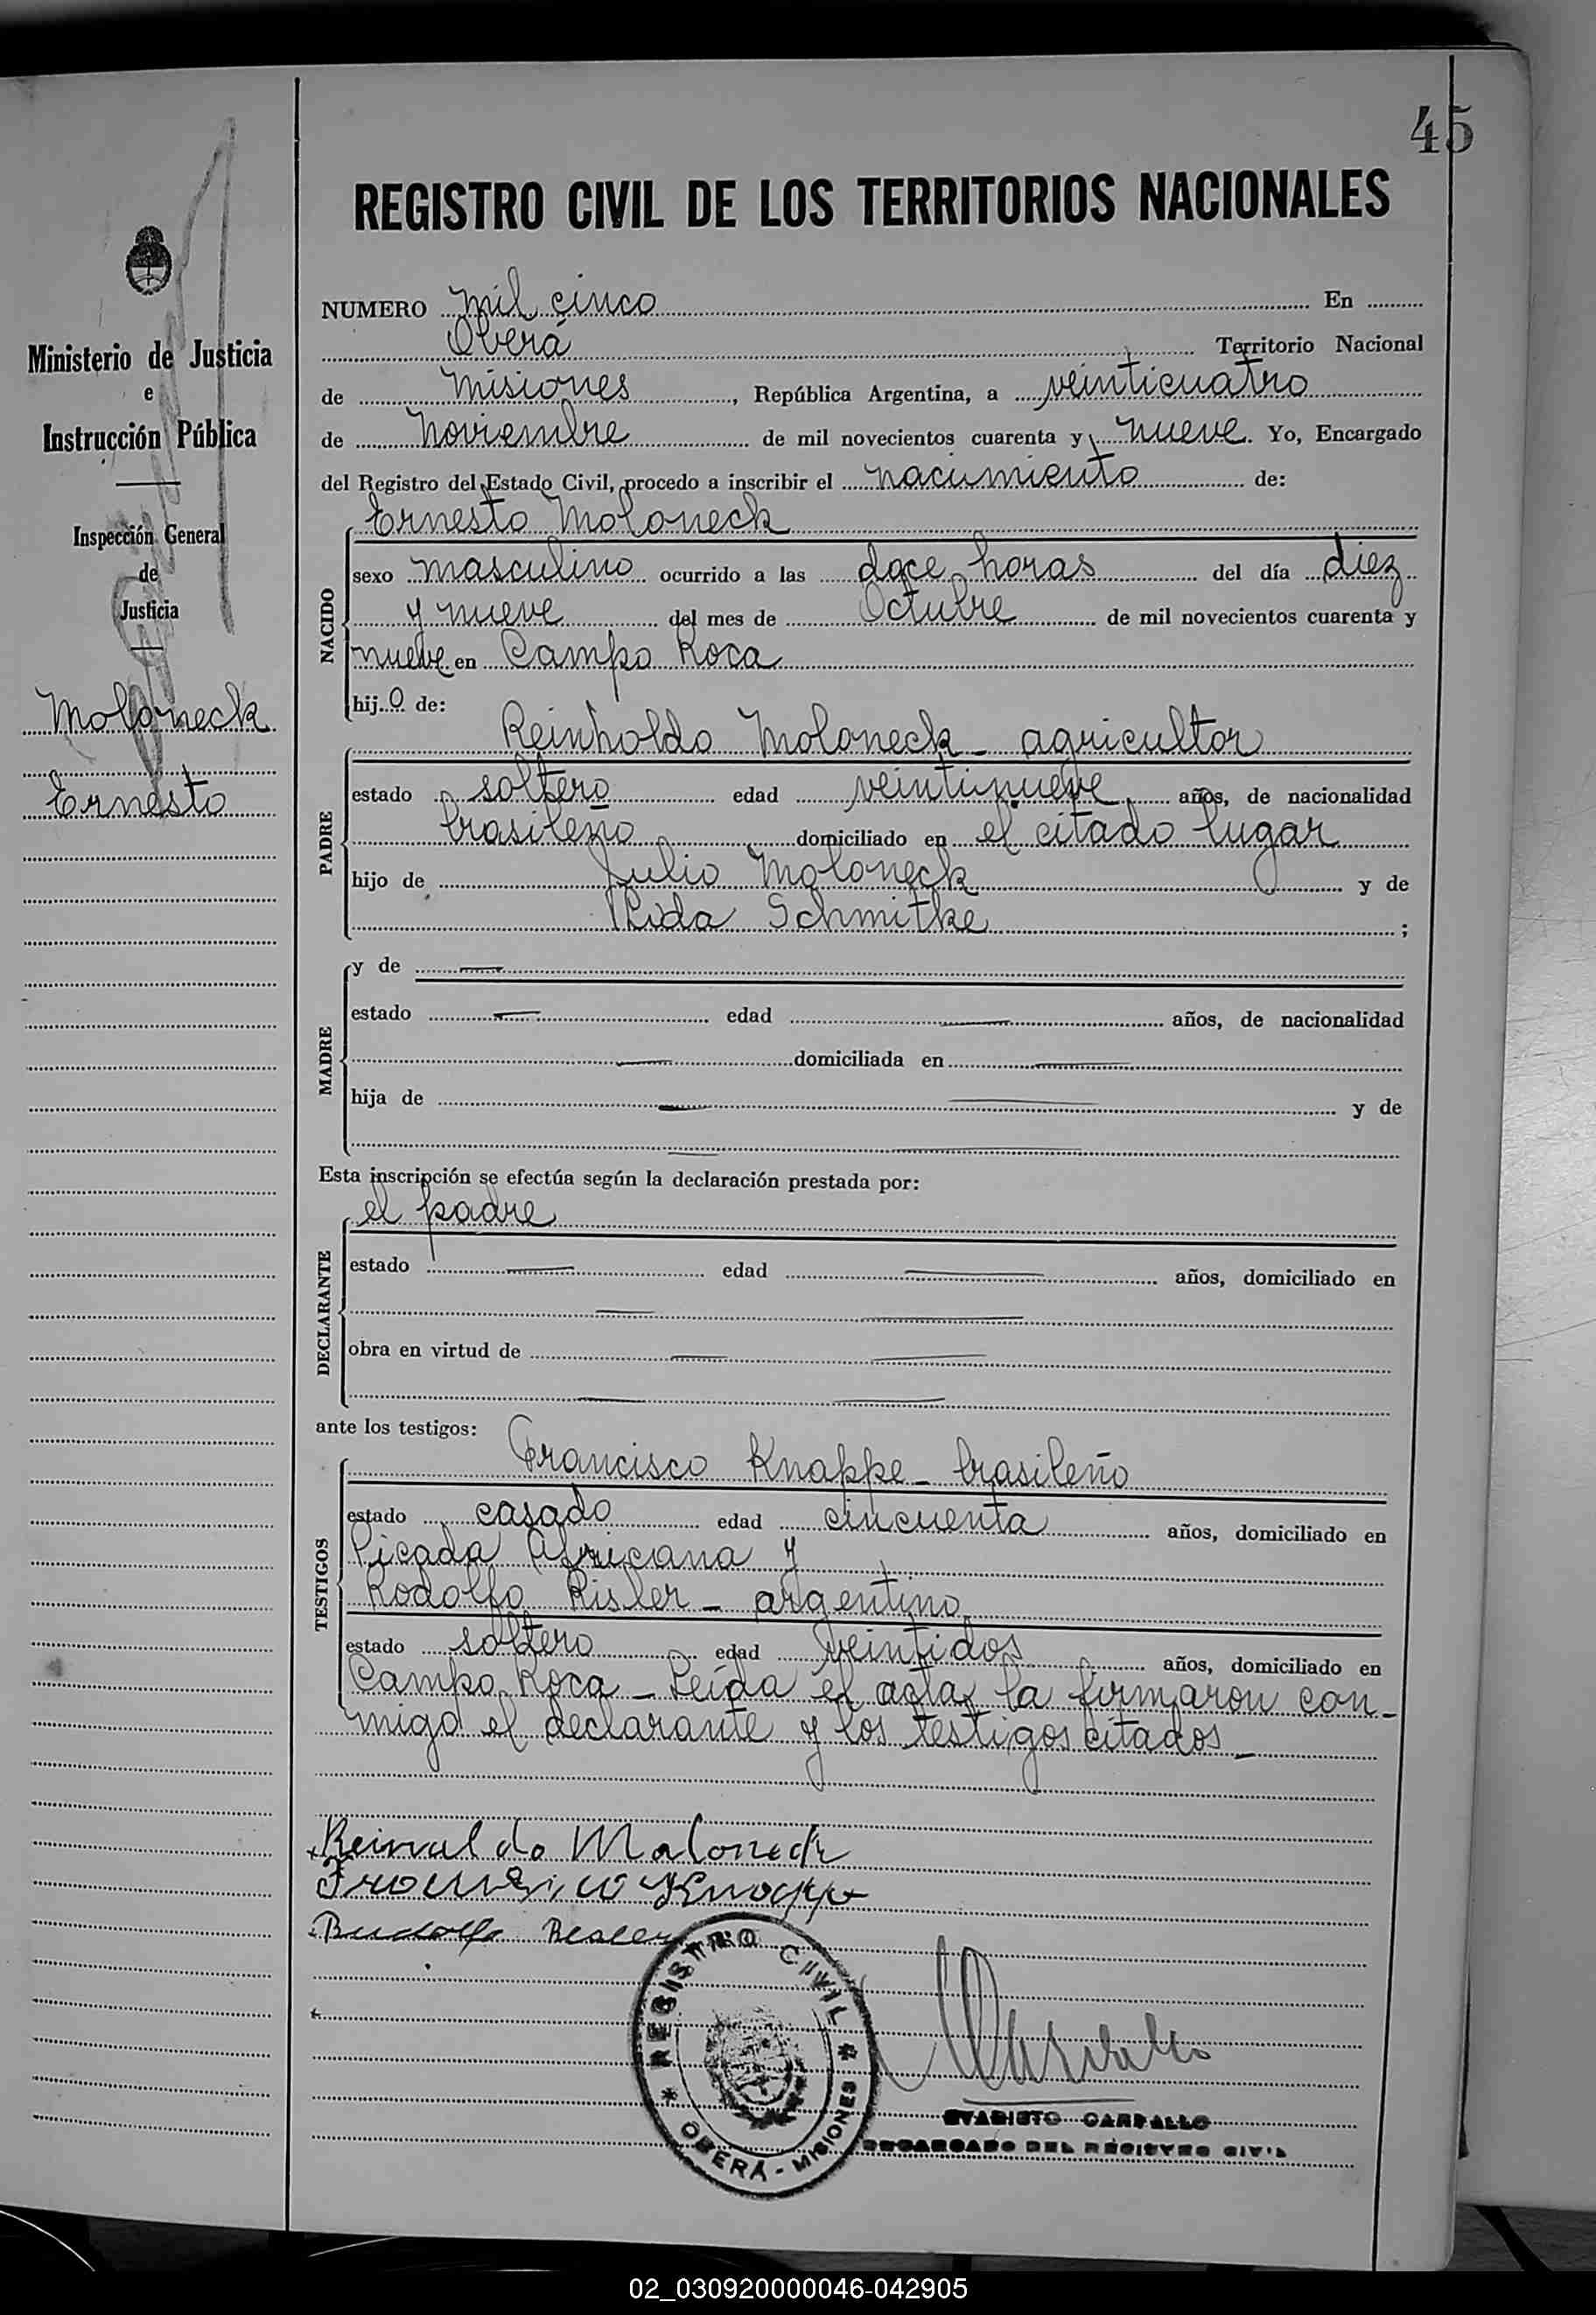 45
REGISTRO CIVIL DE LOS TERRITORIOS NACIONALES
Ministerio de Justicia
e
Instrucción Pública
Inspección General
de
Justicia
Moloneck
Ernesto
NUMERO mil cinco En
Oberá Territorio Nacional
de Misiones, República Argentina, a veinticuatro
de Noviembre de mil novecientos cuarenta y nueve. Yo, Encargado
del Registro del Estado Civil, procedo a inscribir el nacimiento de:
Ernesto Moloneck
NACIDO
sexo masculino ocurrido a las doce horas del día diez
y nueve del mes de Octubre de mil novecientos cuarenta y
nueve en Campo Roca
hijo de:
Reinholdo Moloneck - agricultor
PADRE
estado soltero edad veintinueve años, de nacionalidad
brasileño domiciliado en el citado lugar
hijo de Julio Moloneck y de
Schmitke ;
MADRE
y de —
estado — edad — años, de nacionalidad
— domiciliada en —
hija de — — y de
— —
Esta inscripción se efectúa según la declaración prestada por:
el padre
DECLARANTE
estado — edad — años, domiciliado en
— —
obra en virtud de — —
— —
ante los testigos:
Francisco Knappe - brasileño
TESTIGOS
estado casado edad cincuenta años, domiciliado en
Picada Africana y
Rodolfo Risler - argentino
estado soltero edad veintidos años, domiciliado en
Campo Roca - Leída el acta, la firmaron con-
migo el declarante y los testigos citados -
Reinaldo Maloneck
Francisco Knappe
Rudolfo
REGISTRO CIVIL
* OBERÁ - MISIONES *
EVARISTO CARBALLO
ENCARGADO DEL REGISTRO CIVIL
02_030920000046-042905